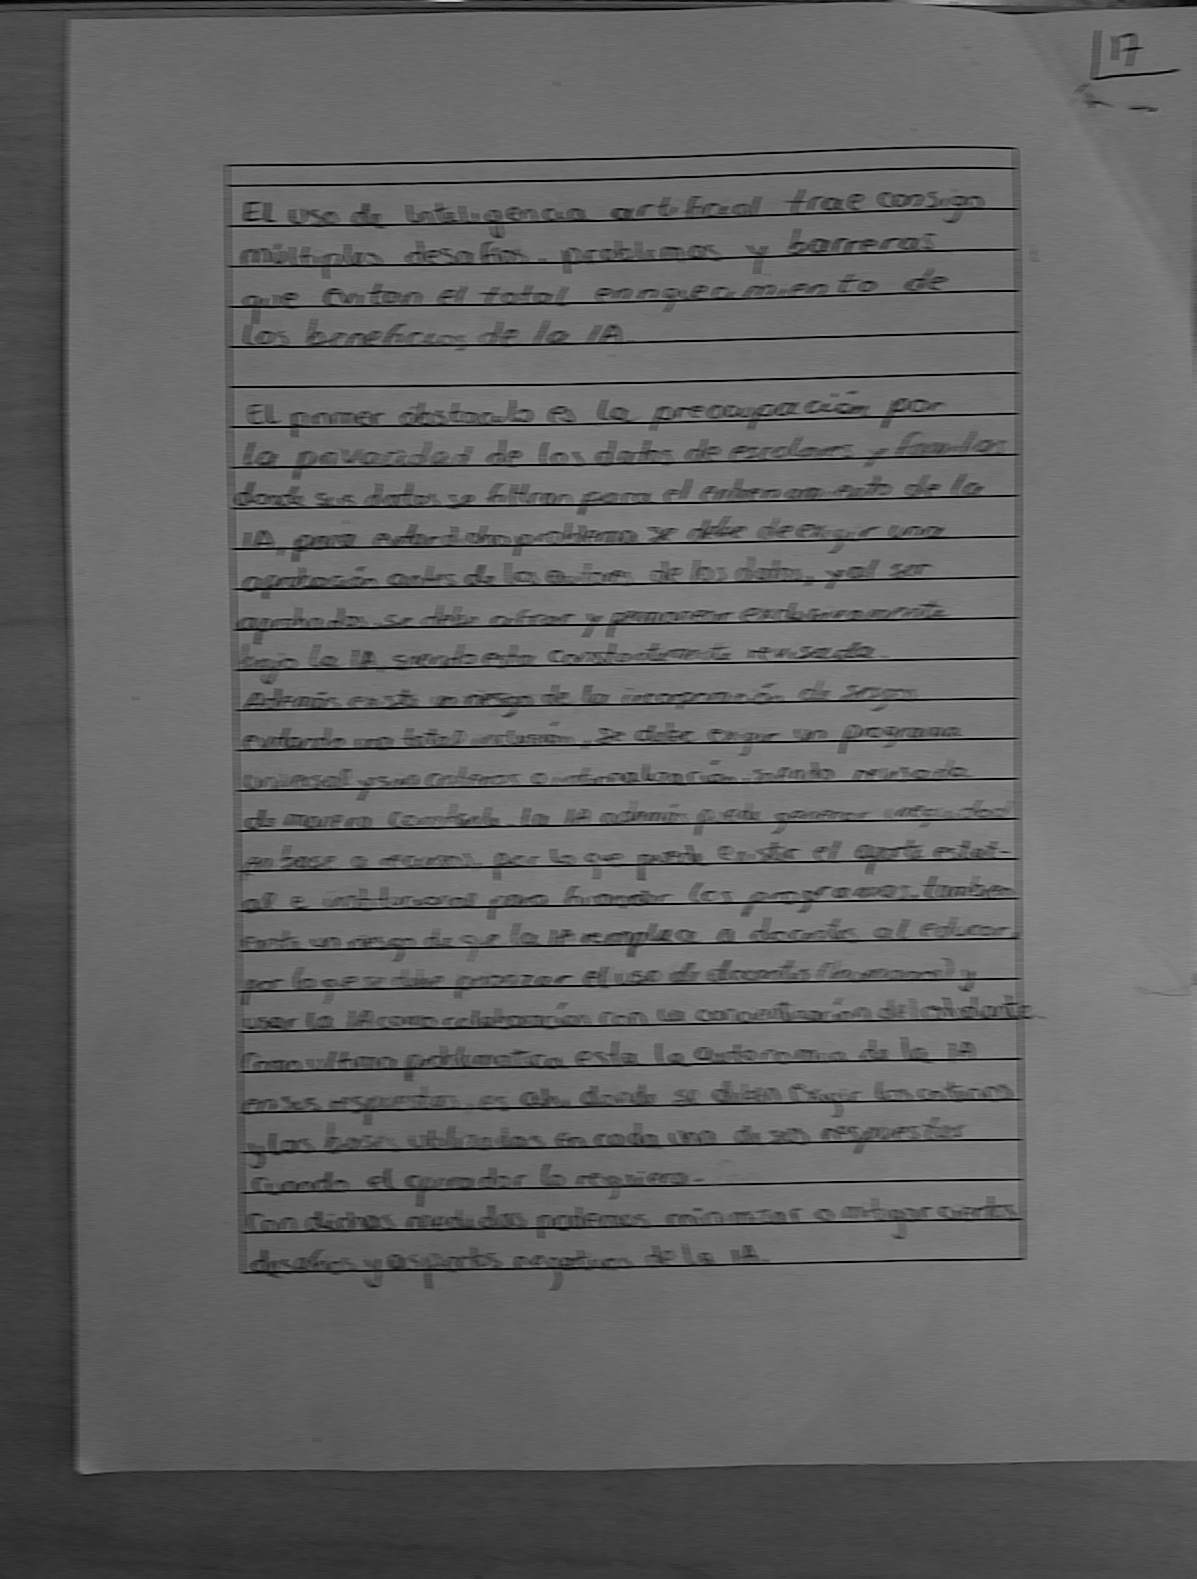 17
El uso de Inteligencia artificial trae consigo
múltiples desafíos, problemas y barreras
que evitan el total enriquecimiento de
los beneficios de la IA.
El primer obstaculo es la preocupación por
la privacidad de los datos de escolares y familias
donde sus datos se filtran para el entrenamiento de la
IA, para evitar dicho problema se debe de exigir una
aprobación antes de los autores de los datos, y al ser
aprobados, se debe cifrar y permanecer exclusivamente
bajo la IA, siendo esta constantemente revisada.
Además existe un riesgo de la incorporación de sesgos
evitando una total inclusión, se debe exigir un programa
universal y sin criterios o internalización, siendo revisado
de manera constante. la IA además puede generar inequidad
en base a recursos, por lo que puede existir el aporte estat-
al e institucional para financiar los programas. tambien
existe un riesgo de que la IA remplace a docentes al educar,
por lo que se debe priorizar el uso de docentes (humanos) y
usar la IA como colaboración con la concientización del docente
Como ultima problematica esta la autonomia de la IA
en sus respuestas, es ahi donde se deben exigir los criterios
y las bases utilizadas en cada una de sus respuestas
cuando el operador lo requiera.
Con dichas medidas podemos minimizar o mitigar ciertos
desafíos y aspectos negativos de la IA.